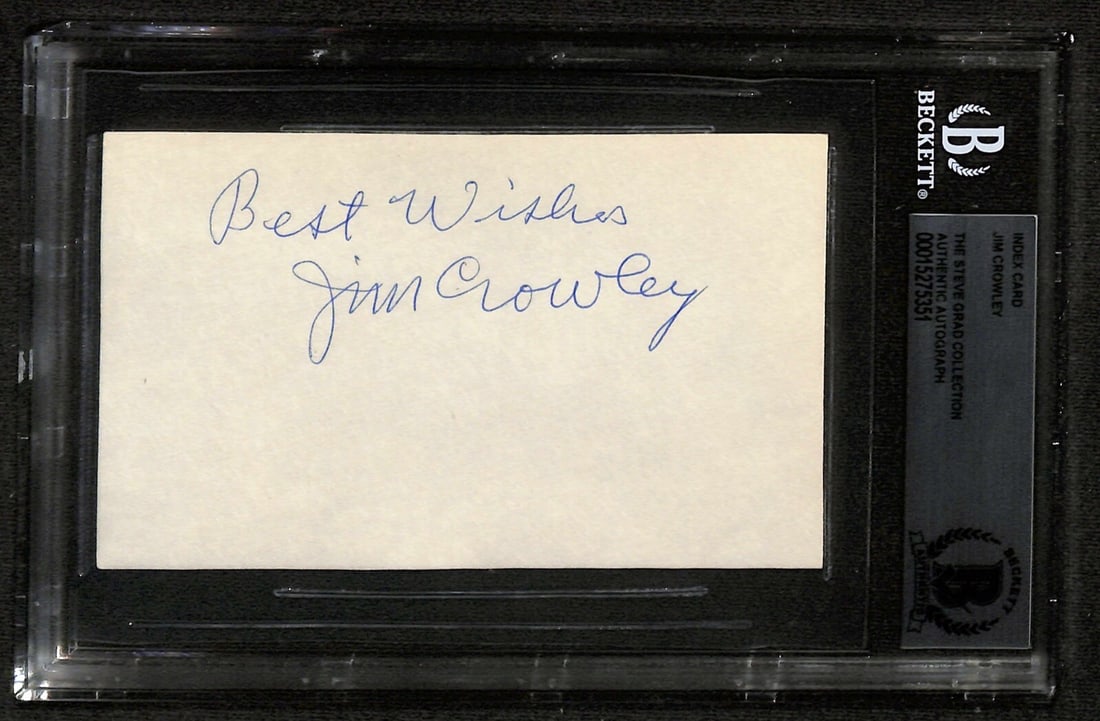 Best Wishes
Jim Crowley
BECKETT®
B
INDEX CARD
JIM CROWLEY
THE STEVE GRAD COLLECTION
AUTHENTIC AUTOGRAPH
00015275351
BECKETT
B
AUTHENTIC